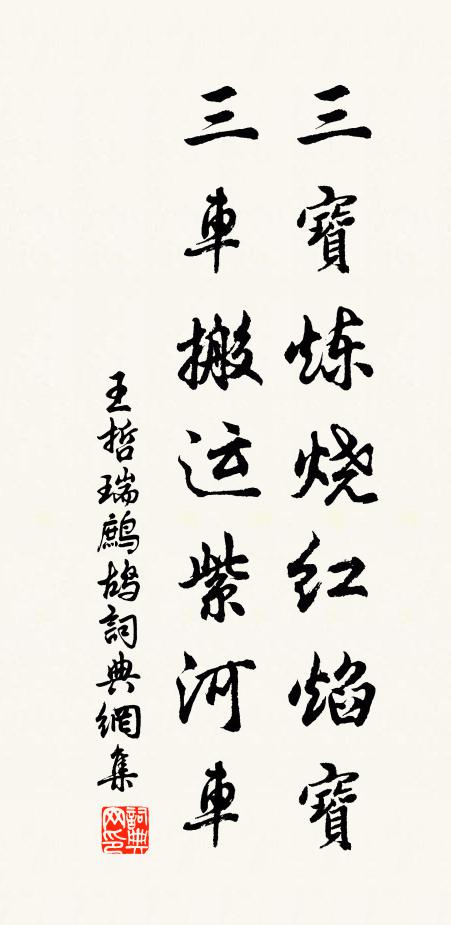 三寶炼烧红焰寶
三車搬运紫河車
王哲瑞鷓鸪詞典網集
詞典网印